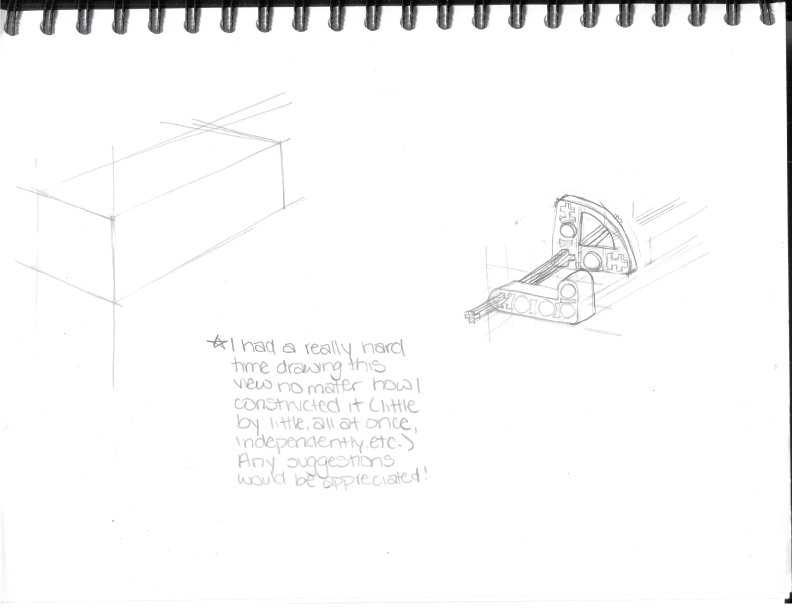 ☆ I had a really hard
time drawing this
view no mater how I
constructed it (little
by little, all at once,
independently, etc.)
Any suggestions
would be appreciated!